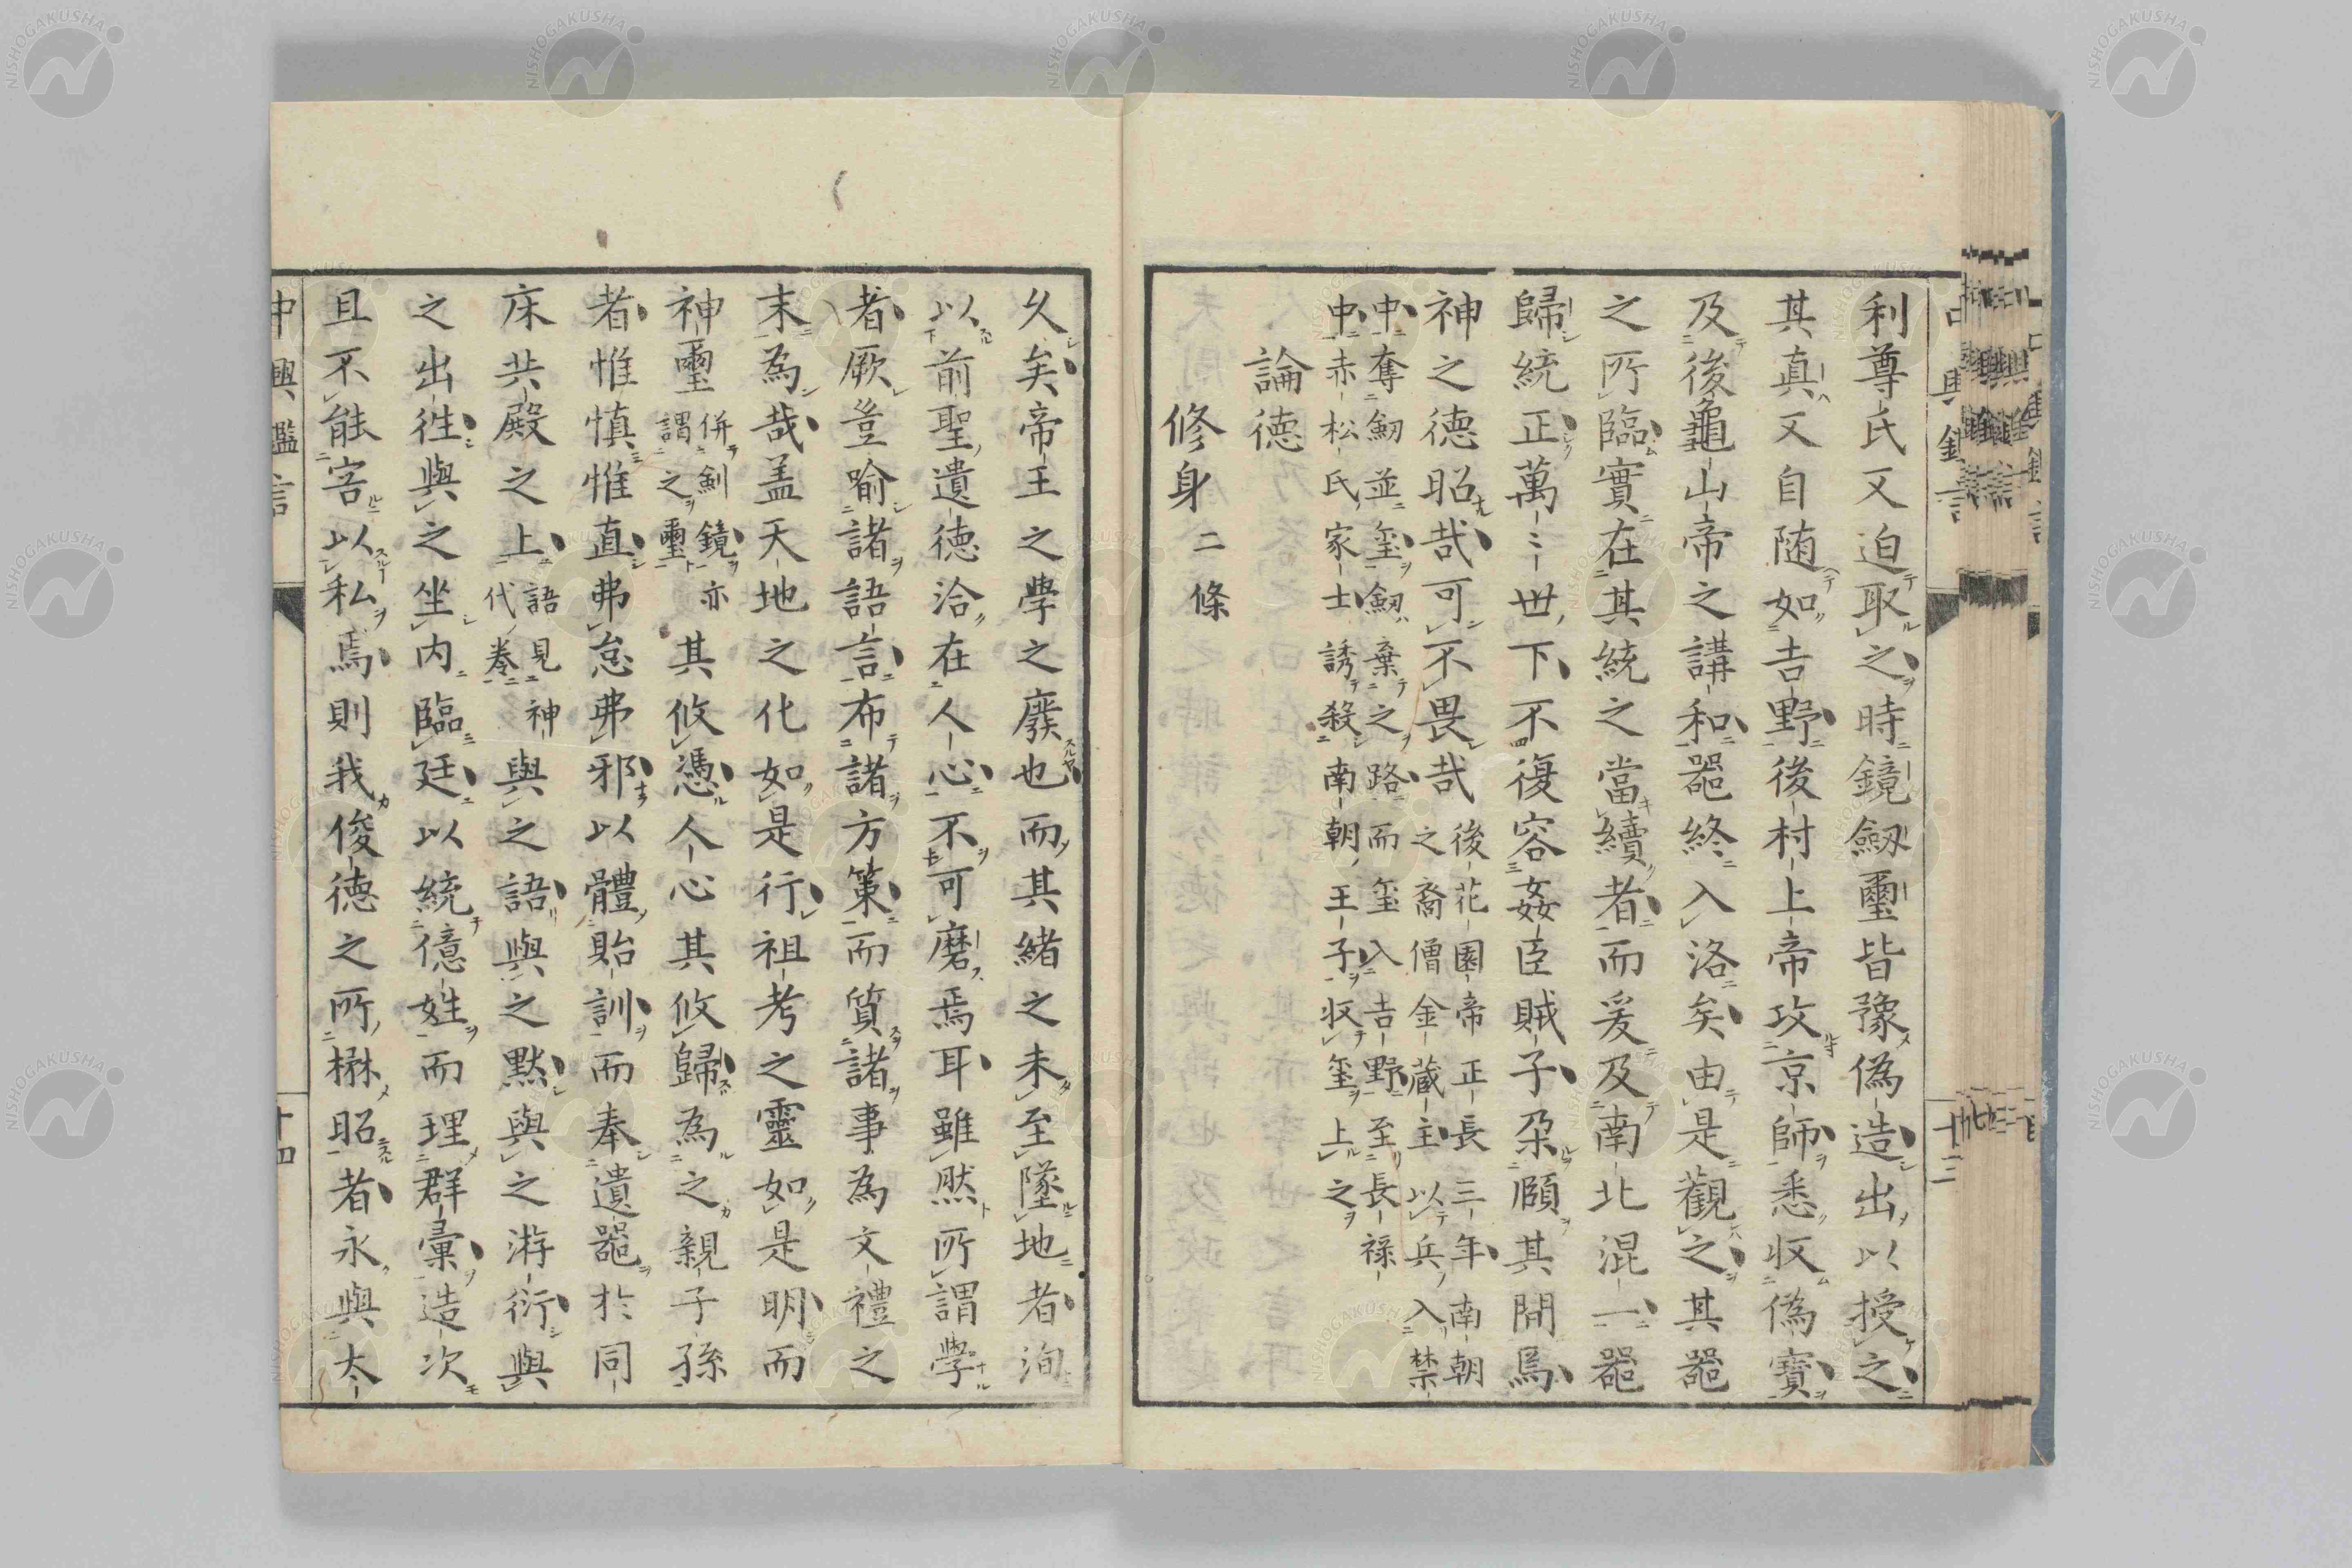 利尊氏又迫取之時鏡劔璽皆豫偽造出以授之
其真又自随如吉野後村上帝攻京師悉収偽寶
及後龜山帝之講和器終入洛矣由是觀之其器
之所臨實在其統之當續者而爰及南北混一器
歸統正萬々世下不復容姦臣賊子朶頤其間焉
神之德昭哉可不畏哉
後花園帝正長三年南朝
之裔僧金蔵主以兵入禁
中奪劔並玺劔棄之路而玺入吉野至長禄
中赤松氏家士誘殺南朝王子収玺上之
論德
修身二條
久矣帝王之學之廢也而其緒之未至墜地者洵
以前聖遺德洽在人心不可磨焉耳雖然所謂學
者厥豈喻諸語言布諸方策而質諸事為文禮之
末為哉盖天地之化如是行祖考之靈如是明而
神璽
併劍鏡亦
謂之璽
其攸憑人心其攸歸為之親子孫
者惟慎惟直弗怠弗邪以體貽訓而奉遺器於同
床共殿之上
語見神
代卷
與之語與之默與之游衍與
之出徃與之坐内臨廷以統億姓而理群彙造次
且不能容以私焉則我俊德之所楙昭者永與太
中興鑑言
十四
NISHOGAKUSHA